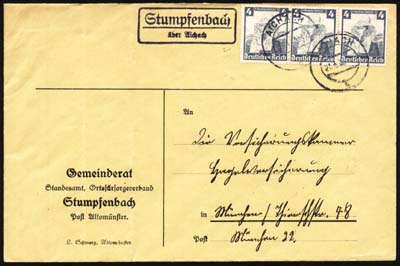 Stumpfenbach
über Aichach
4 4 4
Deutsches Reich Deutsches Reich Deutsches Reich
AICHACH
An
Die Versicherungskammer
Hagelversicherung
in München / Thierschstr. 48
Post München 22.
Gemeinderat
Standesamt, Ortsfürsorgeverband
Stumpfenbach
Post Altomünster.
Altomünster